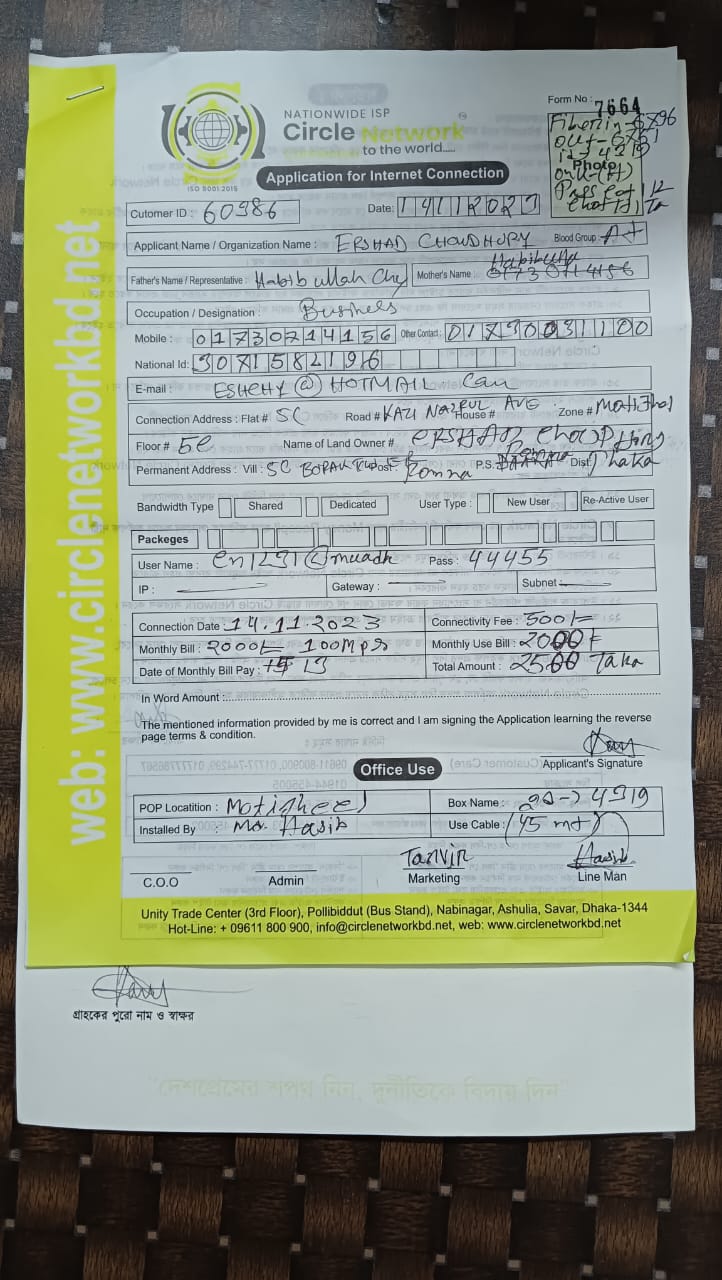 web: www.circlenetworkbd.net
NATIONWIDE ISP
Circle Network
to the world.....
ISO 9001:2015
Form No : 7664
Photo
Application for Internet Connection
Cutomer ID : 60986
Date: 14112023
Applicant Name / Organization Name : ERSHAD CHOUDHURY Blood Group : A+
Father's Name / Representative : Habib ullah Chy Mother's Name :
Occupation / Designation : Business
Mobile : 01730714156 Other Contact : 01730031100
National Id: 3071582196
E-mail : ESHCHY @ HOTMAIL Com
Connection Address : Flat # 5C Road # KAZI NAZRUL AVE House # Zone # Motijheel
Floor # 5C Name of Land Owner #
Permanent Address : Vill : 5C Post : Romna P.S. Dist Dhaka
Bandwidth Type Shared Dedicated User Type : New User Re-Active User
Packeges
User Name : Pass : 44455
IP : Gateway : Subnet
Connection Date : 14.11.2023 Connectivity Fee : 500/=
Monthly Bill : 2000/= 100Mps Monthly Use Bill : 2000/=
Date of Monthly Bill Pay : 13 Total Amount : 2500 Taka
In Word Amount :
The mentioned information provided by me is correct and I am signing the Application learning the reverse
page terms & condition.
Applicant's Signature
Office Use
POP Locatition : Motigheel Box Name : 4319
Installed By : Md. Hasib Use Cable : (45 mt)
TANVIR Hasib
C.O.O Admin Marketing Line Man
Unity Trade Center (3rd Floor), Pollibiddut (Bus Stand), Nabinagar, Ashulia, Savar, Dhaka-1344
Hot-Line: + 09611 800 900, info@circlenetworkbd.net, web: www.circlenetworkbd.net
গ্রাহকের পুরো নাম ও স্বাক্ষর
"দেশপ্রেমের শপথ নিন, দুর্নীতিকে বিদায় দিন"